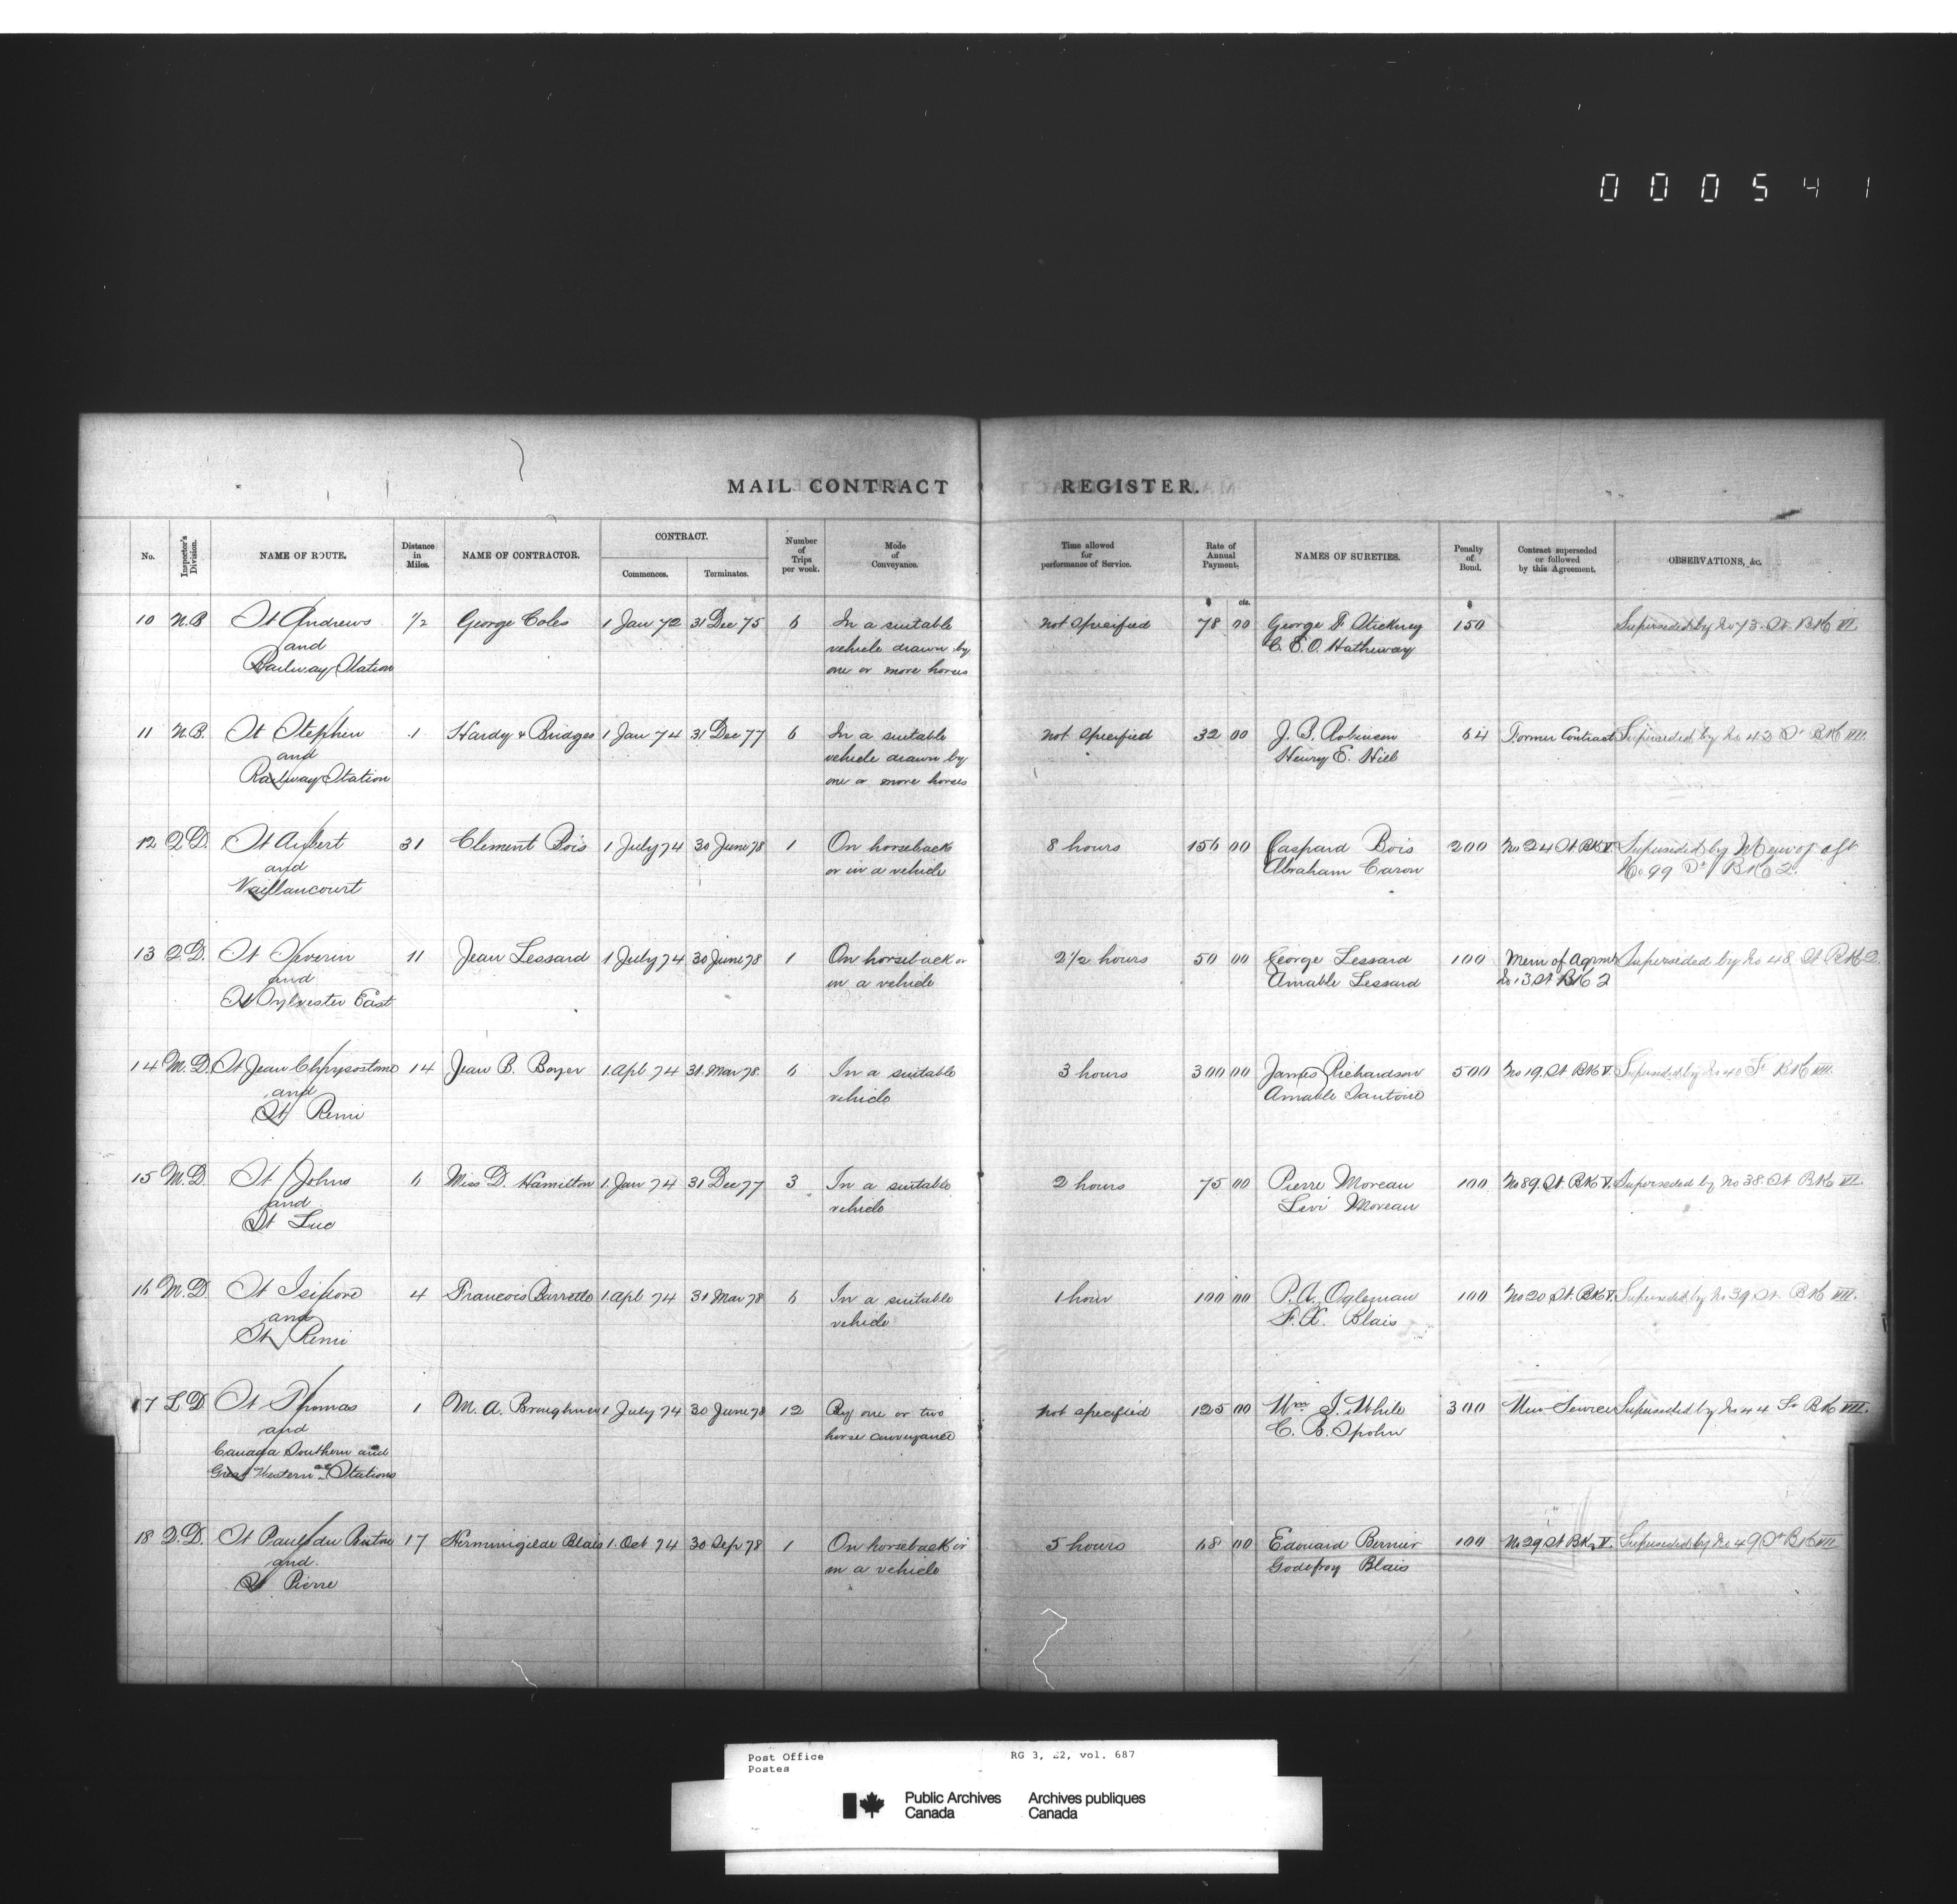 000541
MAIL CONTRACT REGISTER.
No. Inspector's Division. NAME OF ROUTE. Distance in Miles. NAME OF CONTRACTOR. CONTRACT. Commences. Terminates. Number of Trips per week. Mode of Conveyance. Time allowed for performance of Service. Rate of Annual Payment. NAMES OF SURETIES. Penalty of Bond. Contract superseded or followed by this Agreement. OBSERVATIONS, &c.
$ cts. $
10 N.B St Andrews 1/2 George Coles 1 Jan 72 31 Dec 75 6 In a suitable not specified 78 00 George F Stickney 150 Superseded by No 73 St BK VI
and vehicle drawn by C. E. O. Hatheway
Railway Station one or more horses
11 N.B. St Stephen 1 Hardy & Bridges 1 Jan 74 31 Dec 77 6 In a suitable not specified 32 00 J. S. Robinson 64 Former Contract Superseded by No 43 St BK VII.
and vehicle drawn by Henry E. Hill
Railway Station one or more horses
12 Q.D. St Aubert 31 Clement Bois 1 July 74 30 June 78 1 On horseback 8 hours 156 00 Gaspard Bois 200 No 24 St BK V Superseded by Mem of agt
and or in a vehicle Abraham Caron No 99 St BK 2.
Vaillancourt
13 Q.D. St Severin 11 Jean Lessard 1 July 74 30 June 78 1 On horseback or 2 1/2 hours 50 00 George Lessard 100 Mem of Agrmt Superseded by No 48 St BK 2
and in a vehicle Amable Lessard No 13 St BK 2
St Sylvester East
14 M.D. St Jean Chrysostome 14 Jean B. Boyer 1 Apl 74 31 Mar 78 6 In a suitable 3 hours 300 00 James Richardson 500 No 19 St BK V Superseded by No 40 St BK VII
and vehicle Amable Santoire
St Remi
15 M.D. St Johns 6 Miss D. Hamilton 1 Jan 74 31 Dec 77 3 In a suitable 2 hours 75 00 Pierre Moreau 100 No 89 St. BK V. Superseded by No 38 St BK VII.
and vehicle Levi Moreau
St Luc
16 M.D St Isidore 4 Francois Barrette 1 Apl 74 31 Mar 78 6 In a suitable 1 hour 100 00 P. A. Ogleman 100 No 20 St. BK V. Superseded by No 39 St BK VII.
and vehicle F. X. Blais
St Remi
17 L D St Thomas 1 M. A. Broughner 1 July 74 30 June 78 12 By one or two not specified 125 00 Wm J. White 300 New Service Superseded by No 44 St BK VII.
and horse conveyance C. B. Spohn
Canada Southern and
Great Western Stations
18 Q.D. St Paul du Buton 17 Herminigilde Blais 1 Oct 74 30 Sep 78 1 On horseback or 5 hours 68 00 Edouard Bernier 100 No 29 St BK V. Superseded by No 49 St BK VII
and in a vehicle Godefroy Blais
St Pierre
Post Office RG 3, E2, vol. 687
Postes
Public Archives Archives publiques
Canada Canada